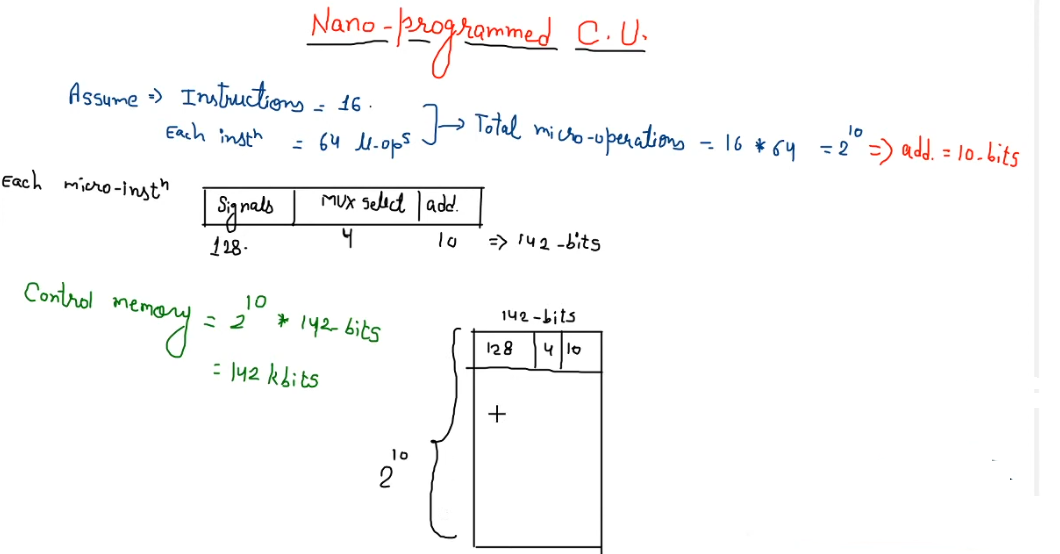 Nano-programmed C.U.
Assume => Instructions = 16.
Each instn = 64 μ-ops
→ Total micro-operations = 16 * 64 = 2^10 => add. = 10-bits
Each micro-instn
Signals | MUX select | add.
128. 4 10 => 142-bits
Control memory = 2^10 * 142-bits
= 142 kbits
142-bits
128 | 4 | 10
+
2^10